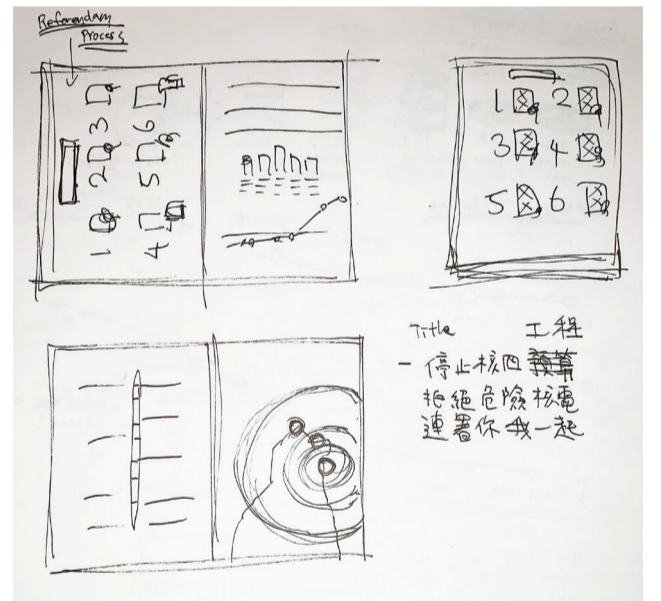 Referendam
Process
1 2 3
4 5 6
1 2
3 4
5 6
Title 工程
- 停止核四預算
拒絕危險核電
連署你我一起